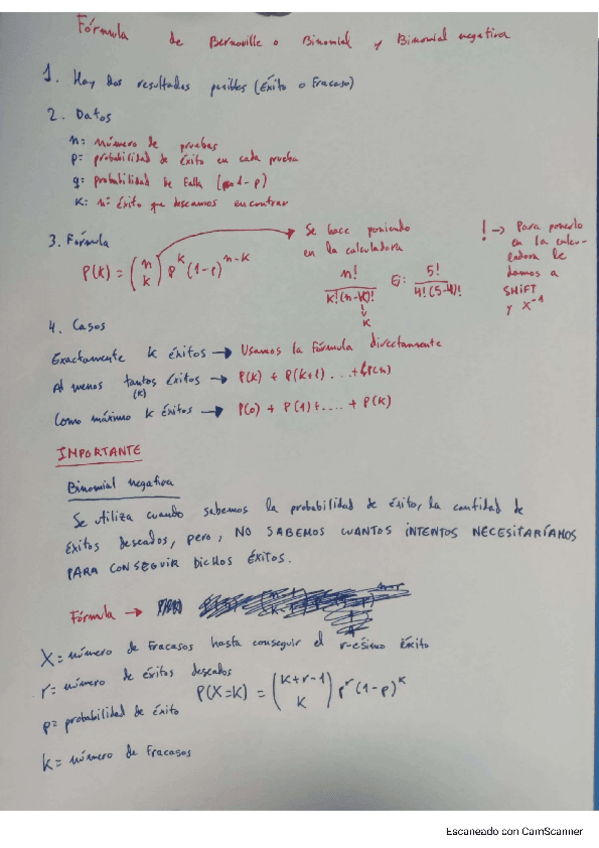 Fórmula de Bernoville o Binomial y Binomial negativa
1. Hay dos resultados posibles (Éxito o Fracaso)
2. Datos
n= número de pruebas
p= probabilidad de éxito en cada prueba
q= probabilidad de Falla (1-p)
K: nº éxito que deseamos encontrar
3. Fórmula
P(K) = (n K) p^K (1-p)^n-K
Se hace poniendo
en la calculadora
n!/K!(n-K)! Ej: 5!/4!(5-4)!
K
! → Para ponerlo
en la calcu-
ladora le
damos a
SHIFT
y X^-1
4. Casos
Exactamente K éxitos → Usamos la fórmula directamente
Al menos tantos éxitos → P(K) + P(K+1) ...+ P(n)
(K)
Como máximo K éxitos → P(0) + P(1) + .... + P(K)
IMPORTANTE
Binomial negativa
Se utiliza cuando sabemos la probabilidad de éxito, la cantidad de
éxitos deseados, pero, NO SABEMOS CUANTOS INTENTOS NECESITARÍAMOS
PARA CONSEGUIR DICHOS ÉXITOS.
Fórmula →
X= número de fracasos hasta conseguir el r-ésimo éxito
r= número de éxitos deseados
P(X=K) = (K+r-1 K) p^r (1-p)^K
p= probabilidad de éxito
k= número de fracasos
Escaneado con CamScanner